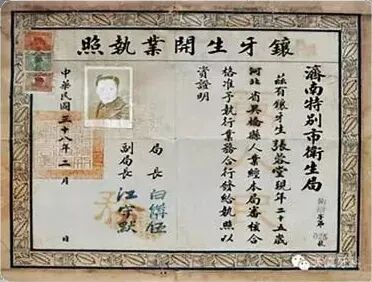 鑲牙生開業執照
濟南特別市衛生局
茲有鑲牙生張蓉堂現年二十五歲
河北省吳橋縣人業經本局審核合
格准予執行業務合行發給執照以
資證明
局長
副局長
中華民國三十八年二月 日